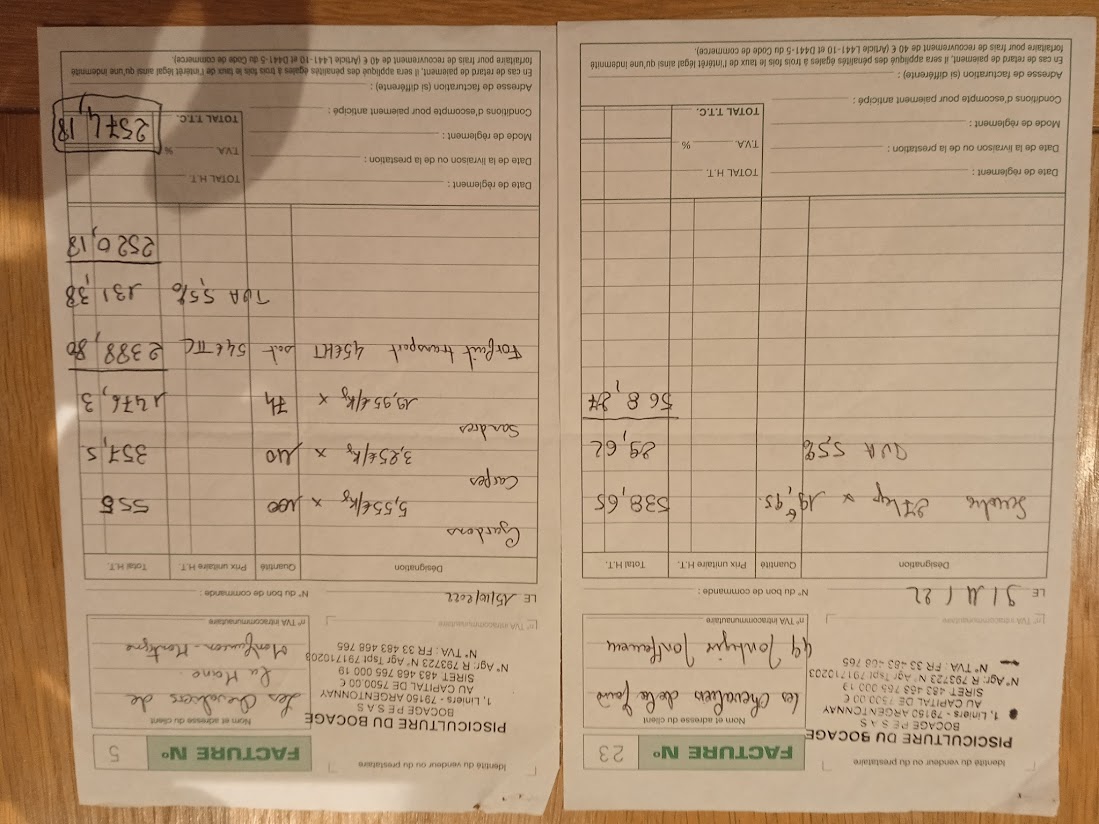 Identité du vendeur ou du prestataire
FACTURE No 23
PISCICULTURE DU BOCAGE
BOCAGE PE S A S
1, Liniers - 79150 ARGENTONNAY
AU CAPITAL DE 7500.00 €
SIRET: 483 468 765 000 19
N° Agr: R 793723 N° Agr Tspt 791710203
N° TVA : FR 33 483 468 765
Nom et adresse du client
Les Chevaliers de la
49
n° TVA intracommunautaire
n° TVA intracommunautaire
LE 9/11/22
N° du bon de commande :
Désignation Quantité Prix unitaire H.T. Total H.T.
27kg x 19€,95 538,65
TVA 5,5% 29,62
568,27
Date de règlement :
TOTAL H.T.
Date de la livraison ou de la prestation :
T.V.A. %
Mode de règlement :
TOTAL T.T.C.
Conditions d'escompte pour paiement anticipé :
Adresse de facturation (si différente) :
En cas de retard de paiement, il sera appliqué des pénalités égales à trois fois le taux de l'intérêt légal ainsi qu'une indemnité
forfaitaire pour frais de recouvrement de 40 € (Article L441-10 et D441-5 du Code de commerce).
Identité du vendeur ou du prestataire
FACTURE No 5
PISCICULTURE DU BOCAGE
BOCAGE PE S A S
1, Liniers - 79150 ARGENTONNAY
AU CAPITAL DE 7500.00 €
SIRET: 483 468 765 000 19
N° Agr: R 793723 N° Agr Tspt 791710203
N° TVA : FR 33 483 468 765
Nom et adresse du client
Les Chevaliers de
la Moine
Montfaucon-Montigne
n° TVA intracommunautaire
n° TVA intracommunautaire
LE 15/10/2022
N° du bon de commande :
Désignation Quantité Prix unitaire H.T. Total H.T.
Gardons
5,55€/kg x 100 555
Carpes
3,25€/kg x 110 357,5
Sandres
19,95€/kg x 74 1476,3
Forfait transport 45€HT soit 54€ TTC 2388,80
TVA 5,5% 131,38
2520,18
Date de règlement :
TOTAL H.T.
Date de la livraison ou de la prestation :
T.V.A. %
Mode de règlement :
TOTAL T.T.C. 2574,18
Conditions d'escompte pour paiement anticipé :
Adresse de facturation (si différente) :
En cas de retard de paiement, il sera appliqué des pénalités égales à trois fois le taux de l'intérêt légal ainsi qu'une indemnité
forfaitaire pour frais de recouvrement de 40 € (Article L441-10 et D441-5 du Code de commerce).